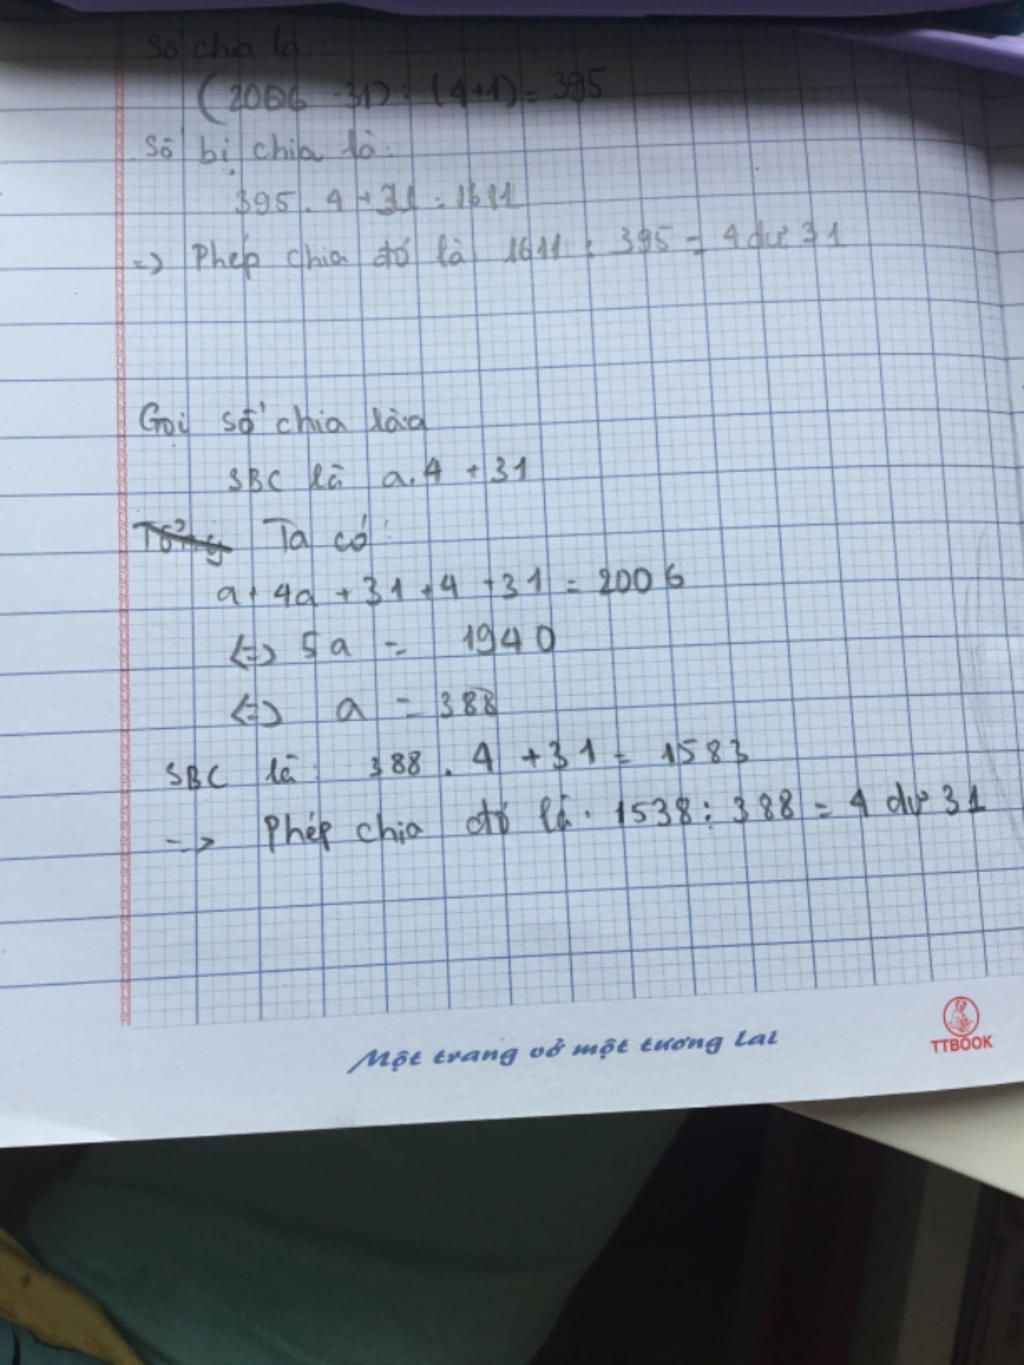 Số chia là
(2006 - 31) : (4+1) = 395
Số bị chia là:
395 . 4 + 31 = 1611
=> Phép chia đó là 1611 : 395 = 4 dư 31
Gọi số chia là a
SBC là a.4 + 31
Tổng Ta có:
a + 4a + 31 + 4 + 31 = 2006
<=> 5a = 1940
<=> a = 388
SBC là: 388 . 4 + 31 = 1583
-> Phép chia đó là: 1538 : 388 = 4 dư 31
Một trang vở một tương lai
TTBOOK